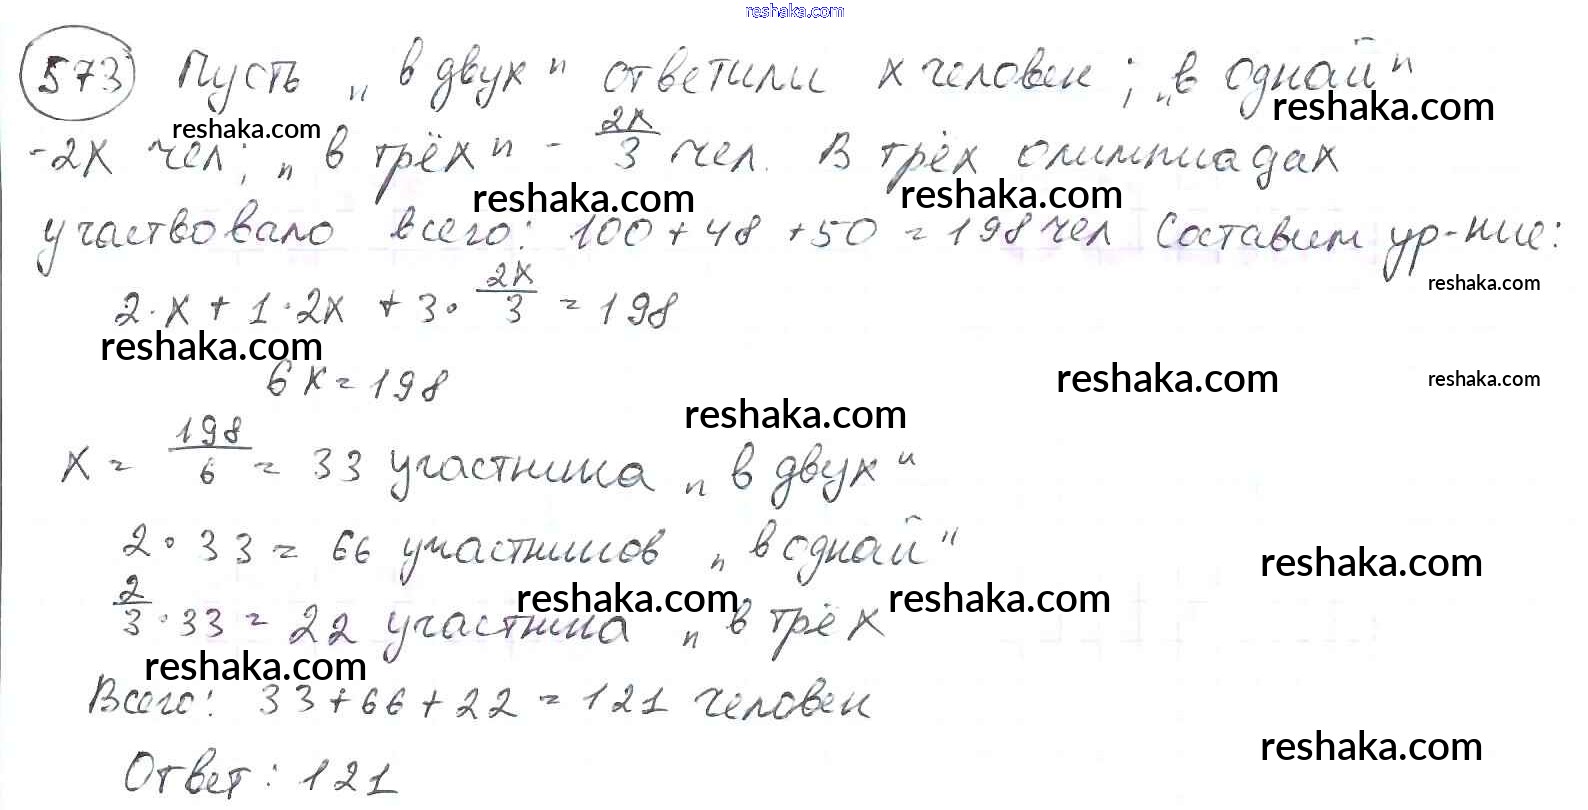 reshaka.com
573 Пусть „в двух" ответили x человек; „в одной"
reshaka.com
reshaka.com
-2x чел; „в трёх" - 2x/3 чел. В трёх олимпиадах
reshaka.com reshaka.com
участвовало всего: 100 + 48 + 50 = 198 чел Составим ур-ние:
reshaka.com
2·x + 1·2x + 3·2x/3 = 198
reshaka.com
6x = 198
reshaka.com reshaka.com
reshaka.com
x = 198/6 = 33 участника „в двух"
2·33 = 66 участников „в одной"
reshaka.com
reshaka.com reshaka.com
2/3·33 = 22 участника „в трёх
reshaka.com
Всего: 33 + 66 + 22 = 121 человек
reshaka.com
Ответ: 121